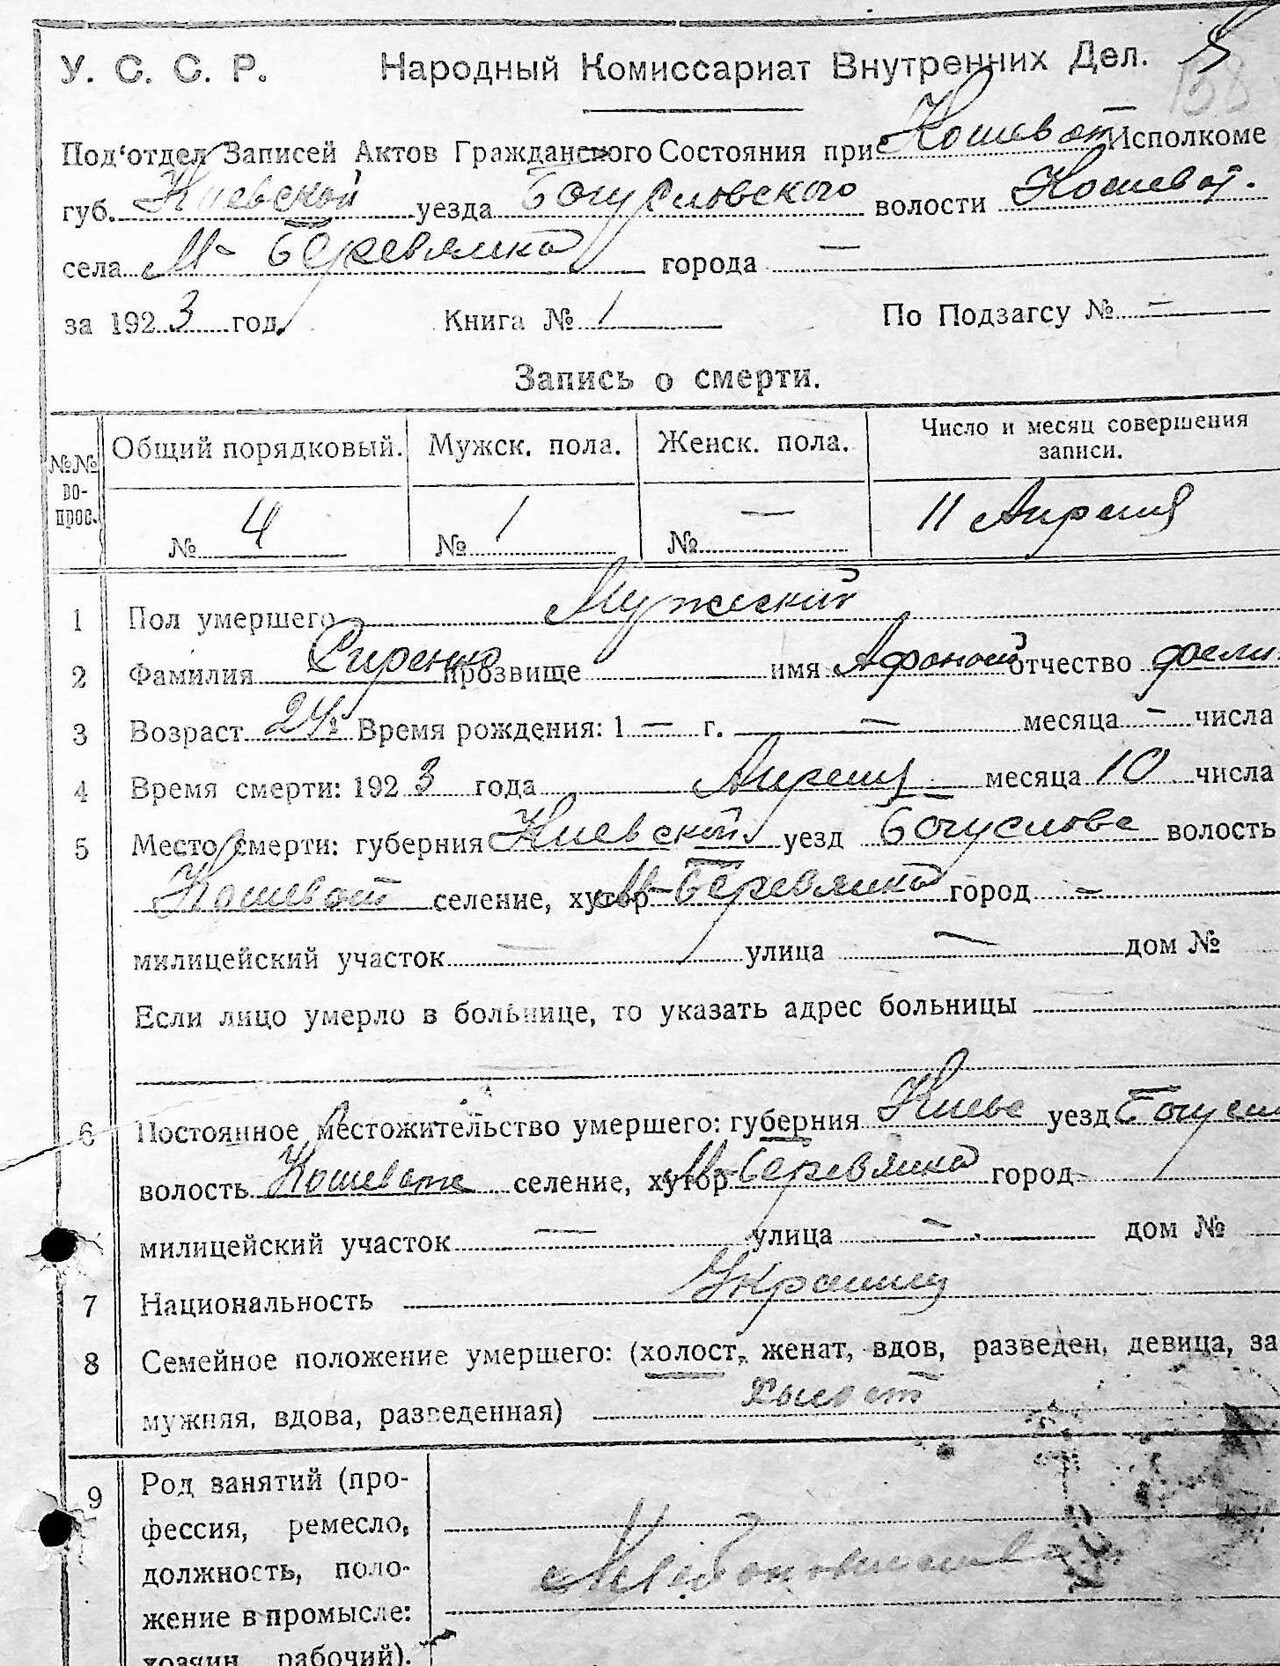 У. С. С. Р. Народный Комиссариат Внутренних Дел. 5
158
Под‘отдел Записей Актов Гражданского Состояния при Кошеват Исполкоме
губ. Киевской уезда Богусловского волости Кошеват.
села М- Березянка города —
за 1923 год. Книга № 1 По Подзагсу № —
Запись о смерти.
№№ во- прос. Общий порядковый. Мужск. пола. Женск. пола. Число и месяц совершения записи.
№ 4 № 1 № — 11 Апреля
1 Пол умершего Мужеский
2 Фамилия Сиренко прозвище имя Афанасий отчество
3 Возраст 24 Время рождения: 1 — г. — месяца — числа
4 Время смерти: 1923 года Апреля месяца 10 числа
5 Место смерти: губерния Киевской уезд Богуслове волость
Кошеват селение, хутор М- Березянка город —
милицейский участок — улица — дом №
Если лицо умерло в больнице, то указать адрес больницы
6 Постоянное местожительство умершего: губерния Киеве уезд Богусл
волость Кошевате селение, хутор М- Березянка город
милицейский участок — улица — дом №
7 Национальность Украинец
8 Семейное положение умершего: (холост, женат, вдов, разведен, девица, за
мужняя, вдова, разведенная) холост
9 Род занятий (про-
фессия, ремесло,
должность, поло-
жение в промысле:
хозяин, рабочий).